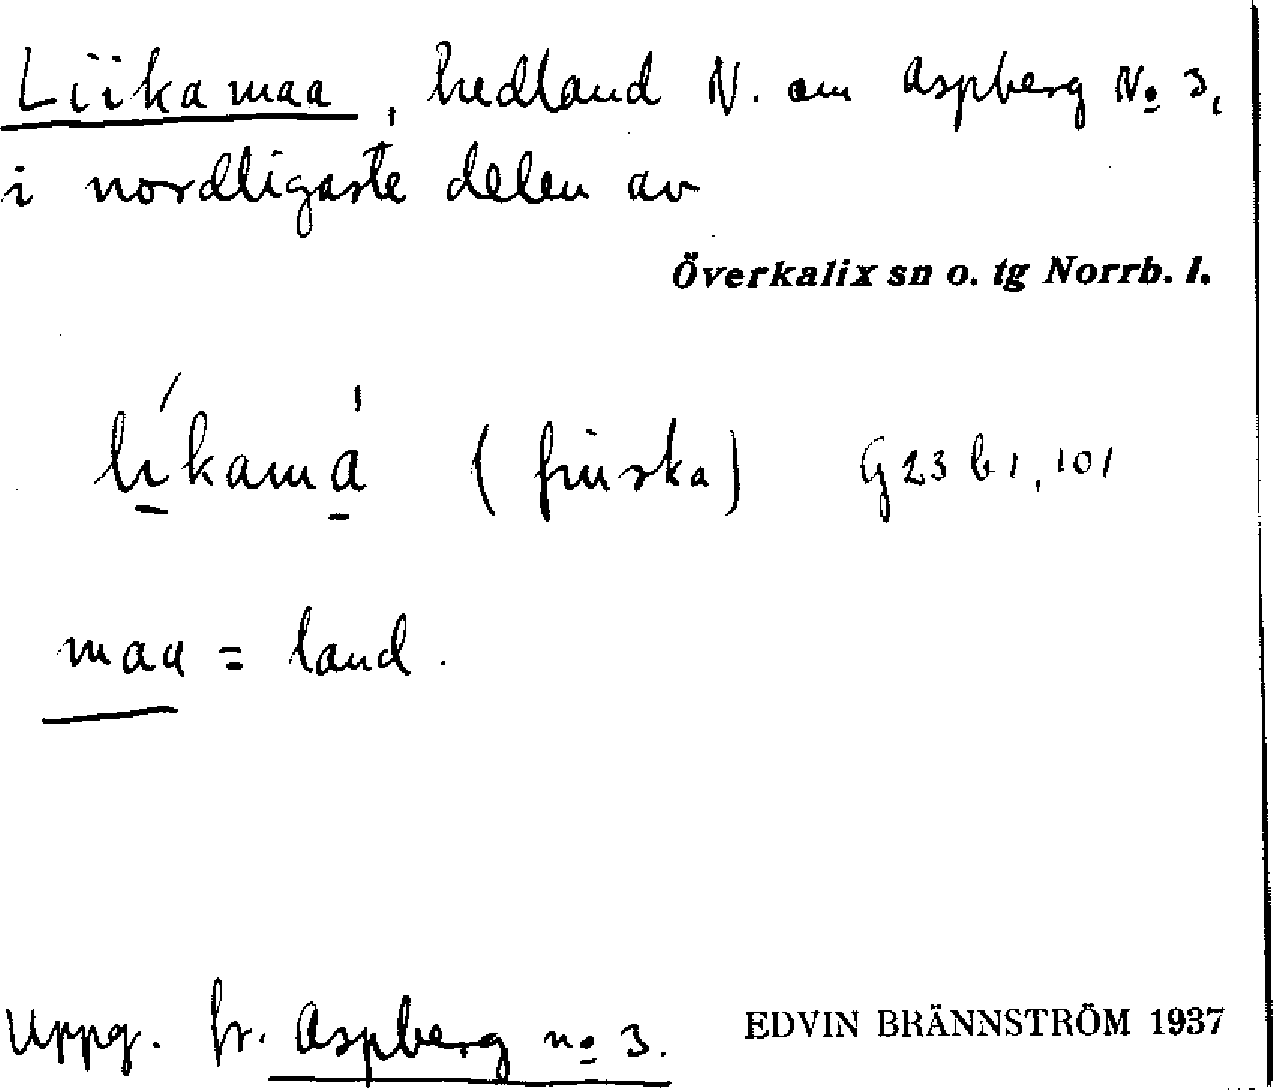 Liikamaa, hedland N. om Aspberg No 3,
i nordligaste delen av
Överkalix sn o. tg Norrb. l.
lí̱kamá̱ (finska) G 23 b 1, 101
maa = land.
Uppg. fr. Aspberg no 3.
EDVIN BRÄNNSTRÖM 1937